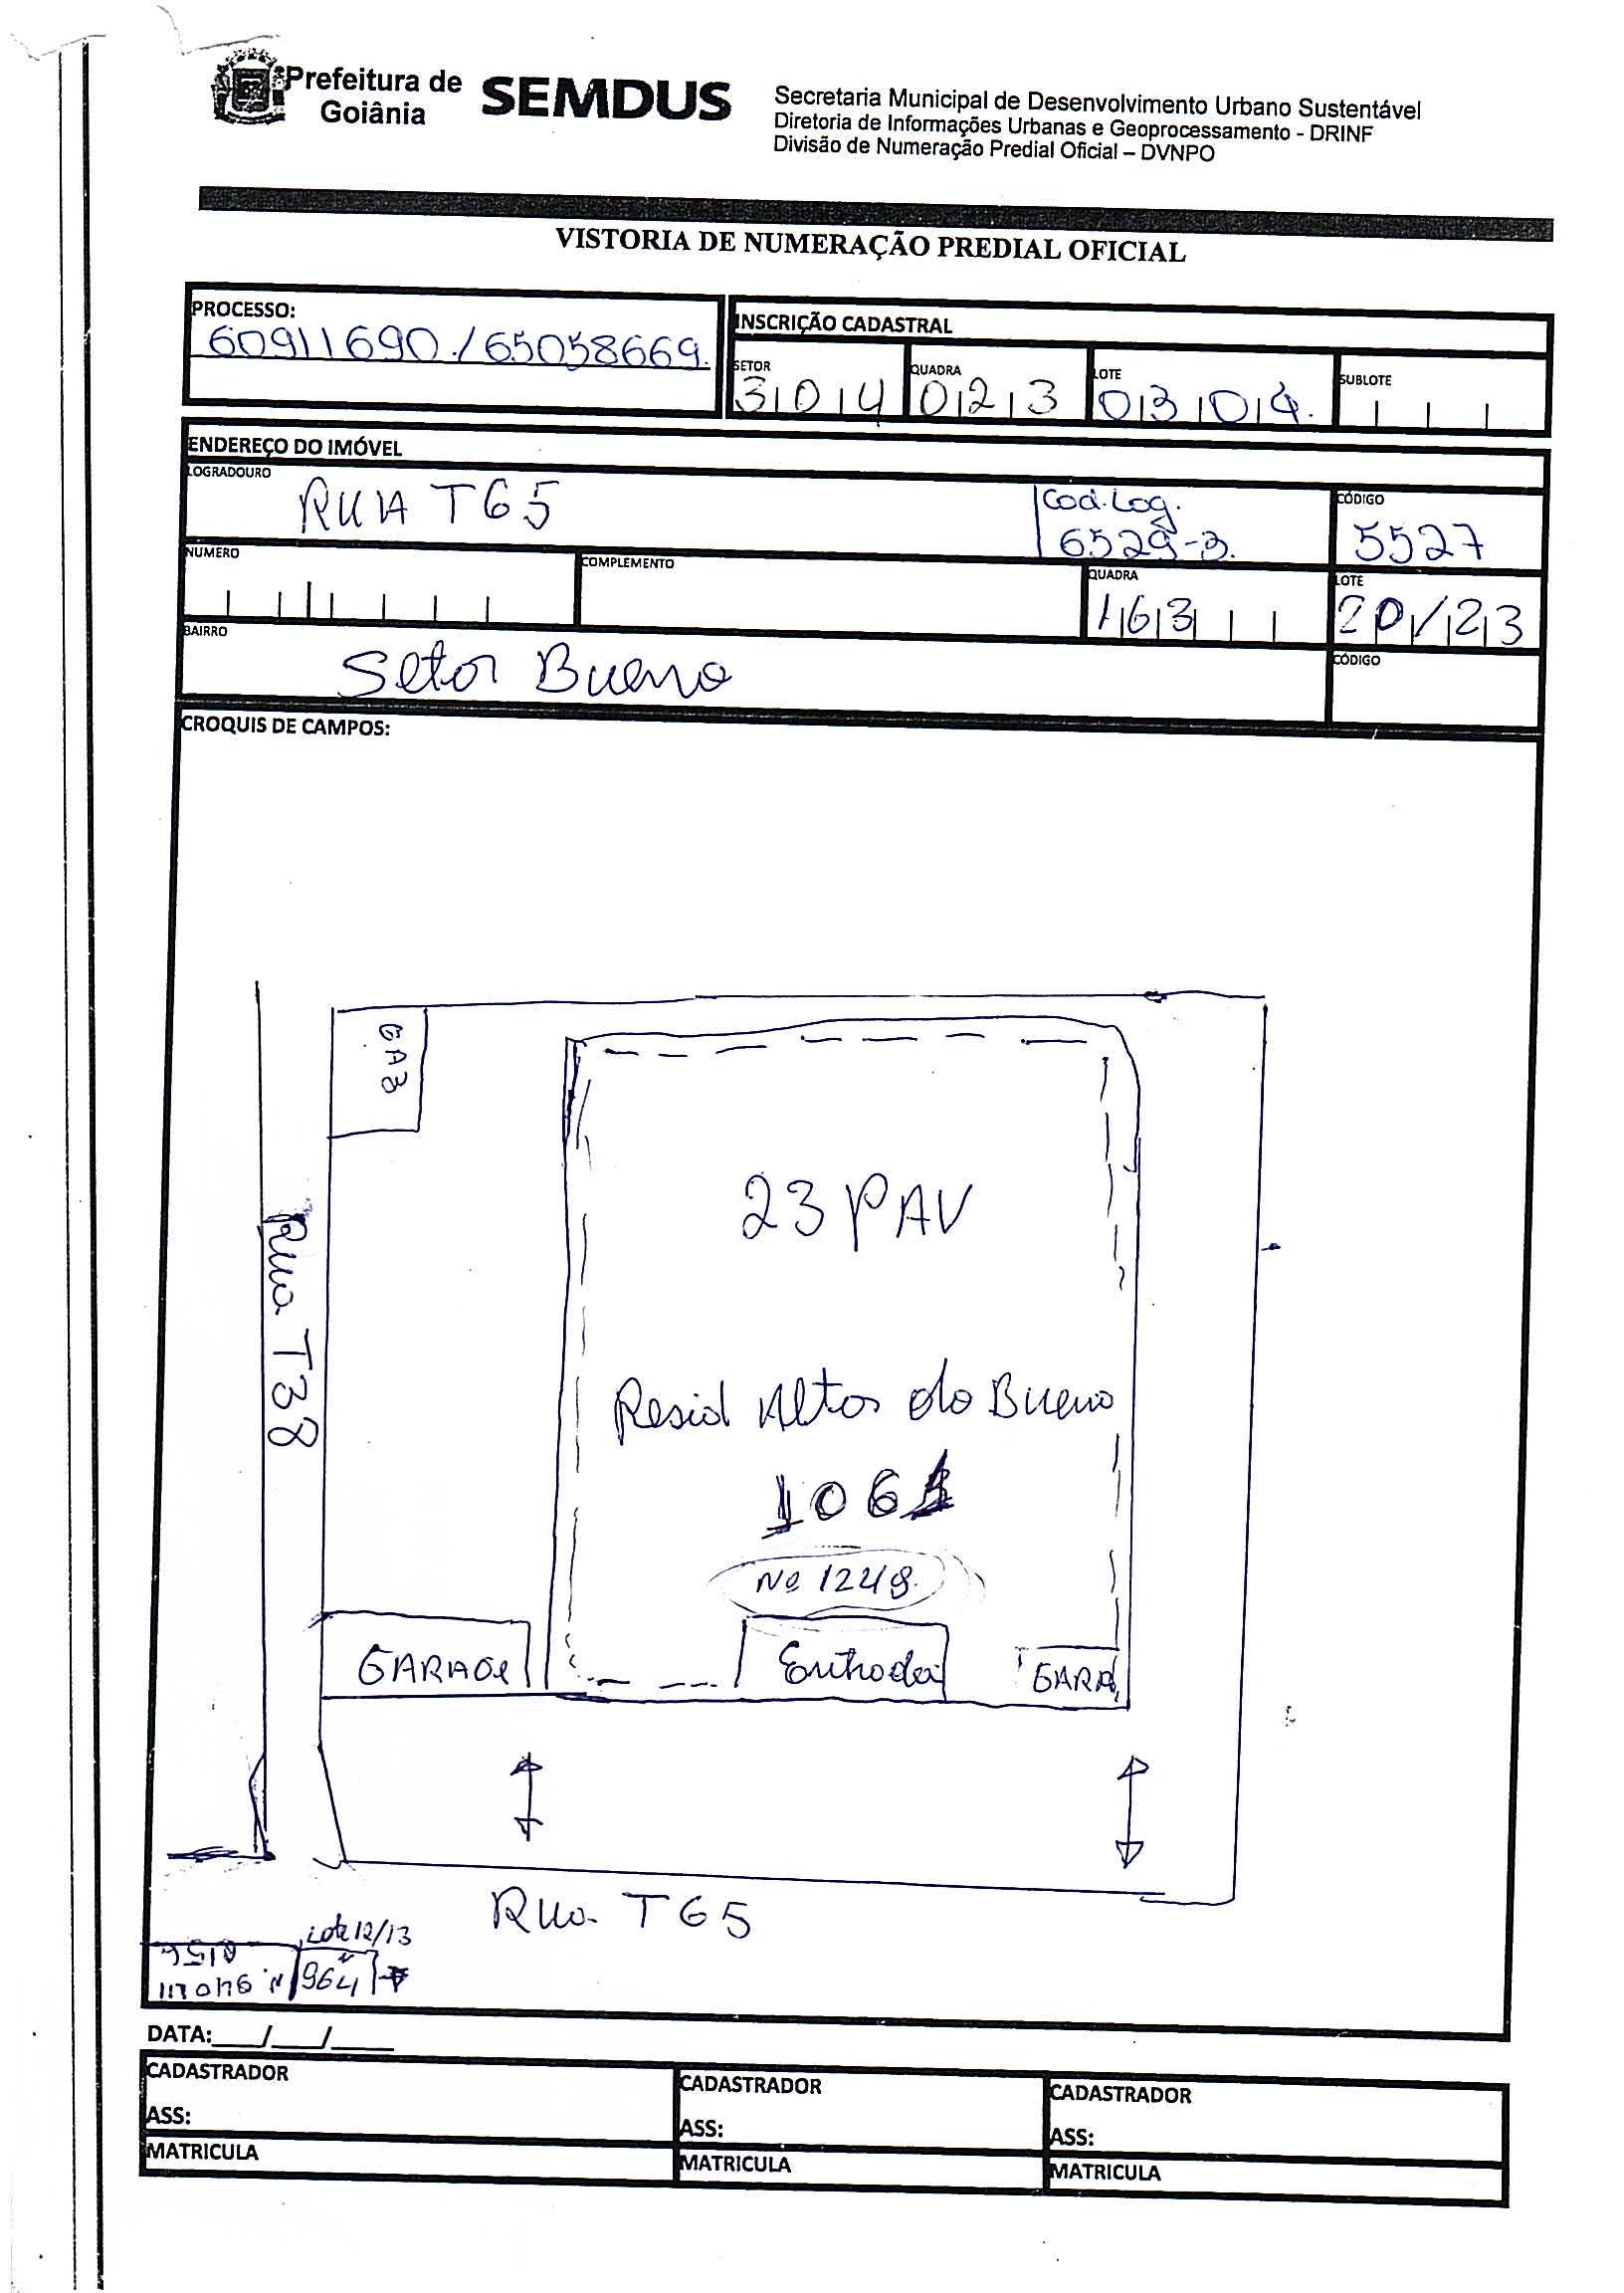 Prefeitura de
Goiânia
SEMDUS
Secretaria Municipal de Desenvolvimento Urbano Sustentável
Diretoria de Informações Urbanas e Geoprocessamento - DRINF
Divisão de Numeração Predial Oficial – DVNPO
VISTORIA DE NUMERAÇÃO PREDIAL OFICIAL
PROCESSO:
60911690./65058669.
INSCRIÇÃO CADASTRAL
SETOR QUADRA LOTE SUBLOTE
304 023 0304.
ENDEREÇO DO IMÓVEL
LOGRADOURO
RUA T65
Cod. Log.
6529-3.
CÓDIGO
5527
NUMERO COMPLEMENTO QUADRA LOTE
163 20/23
BAIRRO
Setor Bueno
CÓDIGO
CROQUIS DE CAMPOS:
GAB
23 PAV
Rua T38
Resid Altos do Bueno
106
Nº 1249.
GARAGE
Entrada
GARA
Rua T65
Lote 12/13
964
DATA:___/___/____
CADASTRADOR
ASS:
MATRICULA
CADASTRADOR
ASS:
MATRICULA
CADASTRADOR
ASS:
MATRICULA